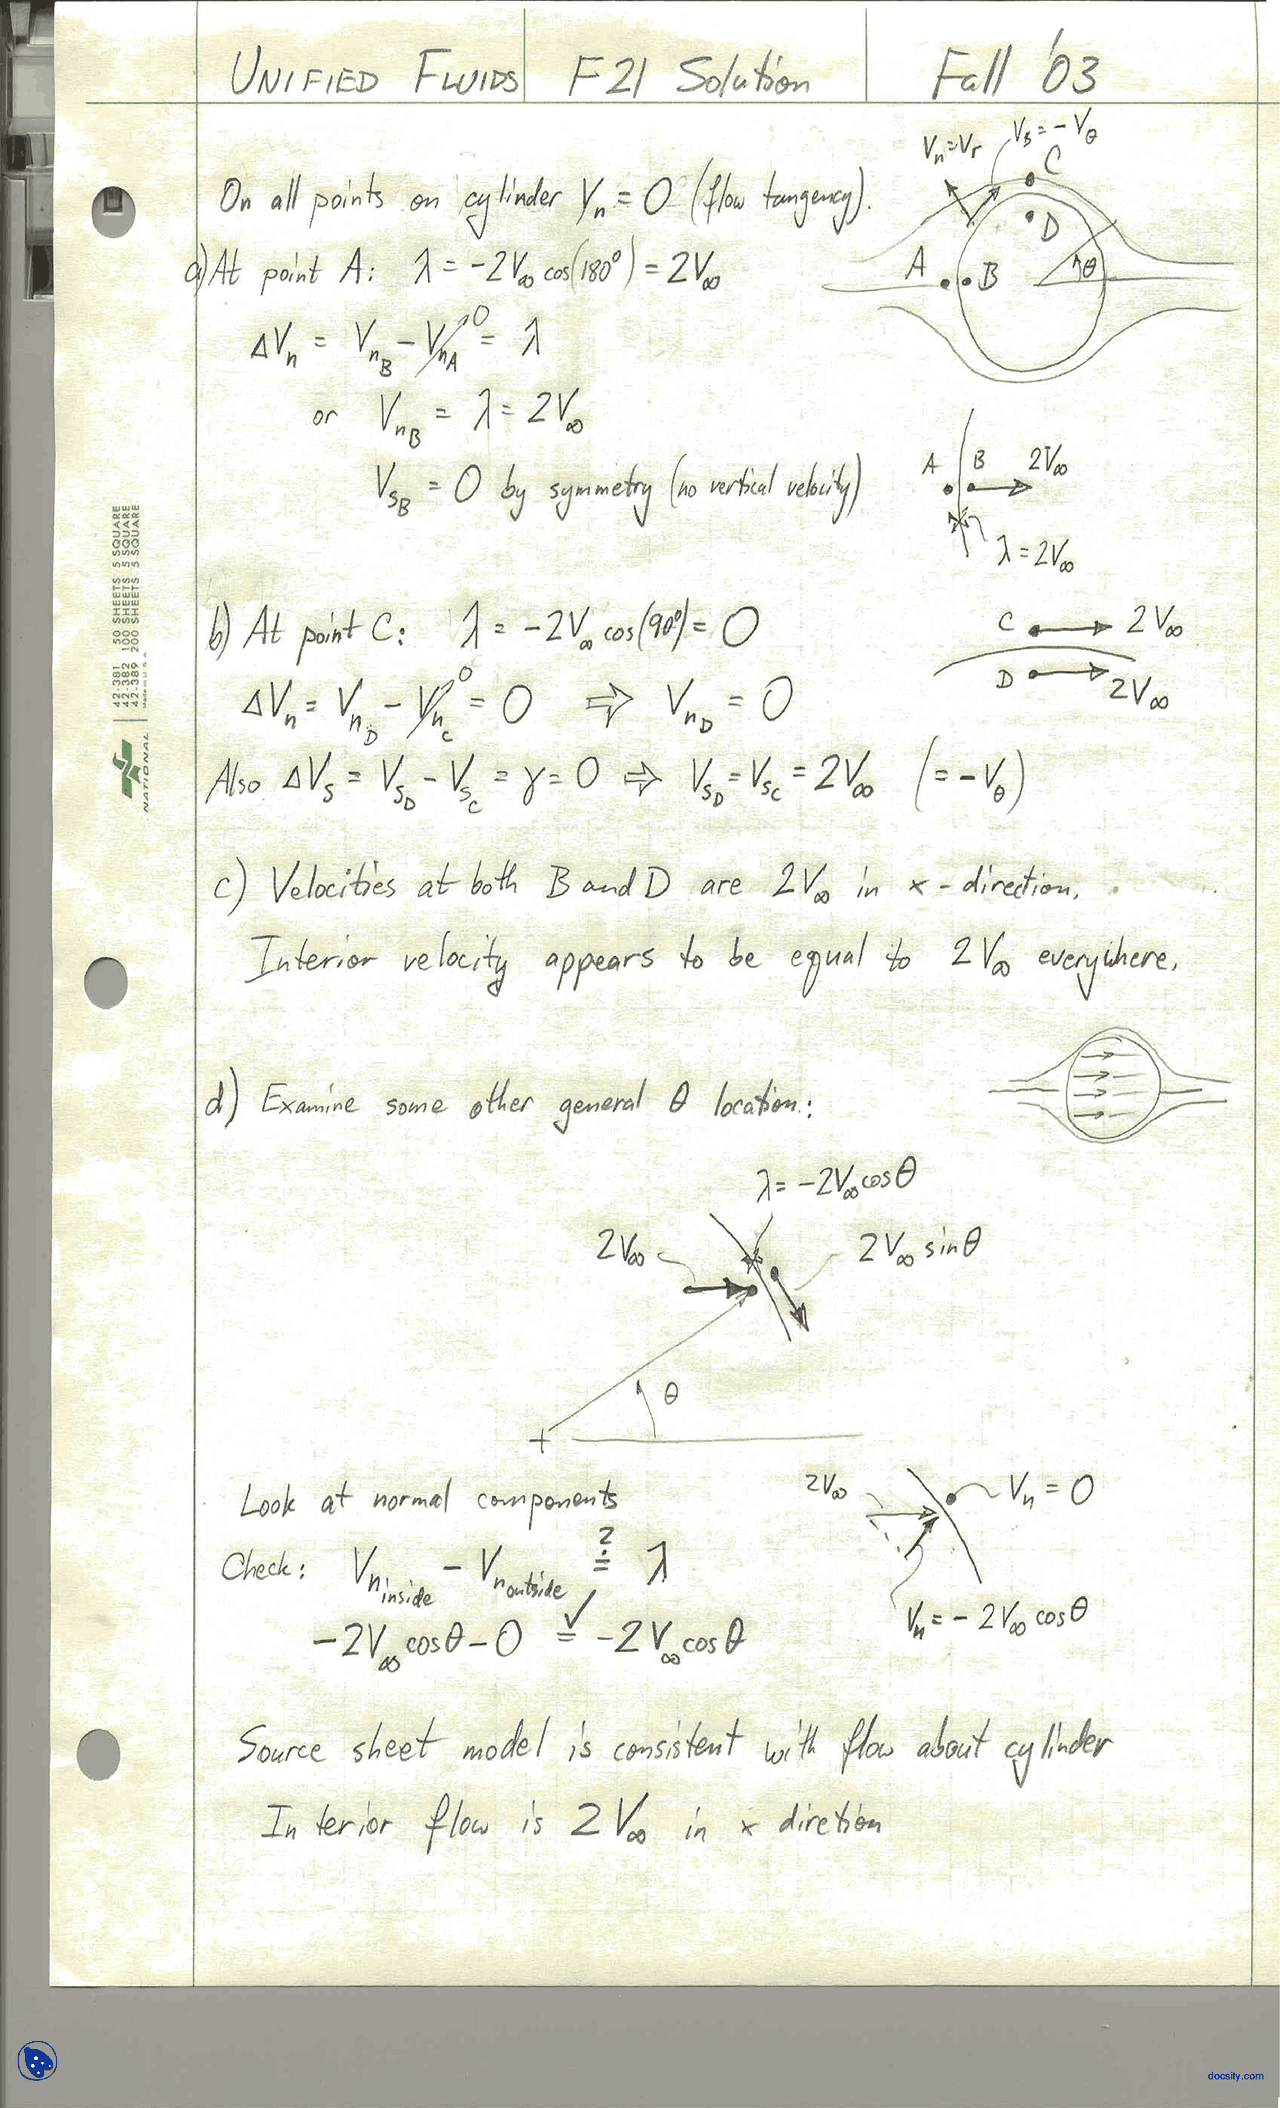 UNIFIED FLUIDS F21 Solution Fall '03
Vn=Vr Vs=-Vθ
C
On all points on cylinder Vn = 0 (flow tangency).
D
a) At point A: λ = -2V∞ cos(180°) = 2V∞
A B θ
ΔVn = VnB - VnA→0 = λ
or VnB = λ = 2V∞
A B 2V∞
VsB = 0 by symmetry (no vertical velocity)
λ = 2V∞
b) At point C: λ = -2V∞ cos(90°) = 0
C 2V∞
D 2V∞
ΔVn = VnD - VnC→0 = 0 ⇒ VnD = 0
Also ΔVs = VsD - VsC = γ = 0 ⇒ VsD = VsC = 2V∞ (= -Vθ)
c) Velocities at both B and D are 2V∞ in x-direction.
Interior velocity appears to be equal to 2V∞ everywhere.
d) Examine some other general θ location:
λ = -2V∞ cosθ
2V∞ 2V∞ sinθ
θ
Look at normal components
2V∞ Vn = 0
Check: Vn inside - Vn outside ≟ λ
Vn = -2V∞ cosθ
-2V∞ cosθ - 0 =✓ -2V∞ cosθ
Source sheet model is consistent with flow about cylinder
Interior flow is 2V∞ in x diretion
42-381 50 SHEETS 5 SQUARE
42-382 100 SHEETS 5 SQUARE
42-389 200 SHEETS 5 SQUARE
Made in U.S.A.
NATIONAL
docsity.com